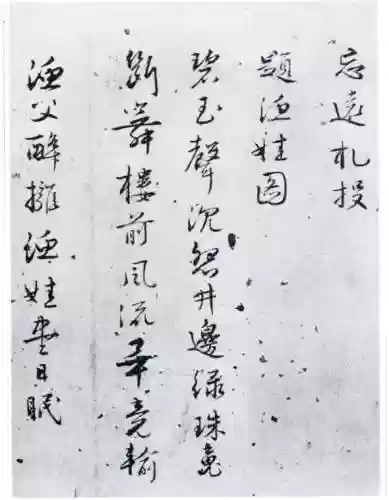 忘遠札投
題漁娃圖
碧玉聲沉怨井邊綠珠魂
斷舞樓前風流畢竟輸
漁父醉擁漁娃盡日眠